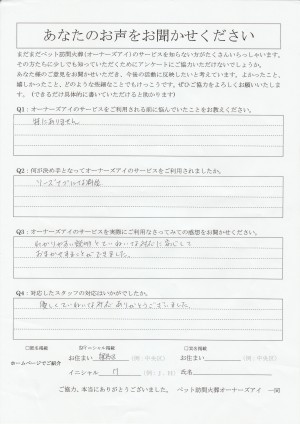 あなたのお声をお聞かせください
まだまだペット訪問火葬(オーナーズアイ)のサービスを知らない方がたくさんいらっしゃいます。
その方たちに少しでも知っていただくためにアンケートにご協力いただけないでしょうか。
あなた様のご意見をお聞かせいただき、今後の活動に反映したいと考えています。よかったこと、
嬉しかったこと、どのような些細なことでもけっこうです。ぜひご協力をよろしくお願いいたしま
す。(できるだけ具体的に書いていただけると助かります)
Q1:オーナーズアイのサービスをご利用される前に悩んでいたことをお教えください。
特にありません
Q2:何が決め手となってオーナーズアイのサービスをご利用されましたか。
Q3:オーナーズアイのサービスを実際にご利用なさってみての感想をお聞かせください。
わかりやすい説明とていねいな対応に安心して
おまかせすることができました。
Q4:対応したスタッフの対応はいかがでしたか。
優しくていねいな対応 ありがとうございました。
□匿名掲載 ☑イニシャル掲載 □実名掲載
ホームページでご紹介
お住まい (例:中央区) お住まい (例:中央区)
イニシャル (例:I.H) 氏名
ご協力、本当にありがとうございました。 ペット訪問火葬オーナーズアイ 一同